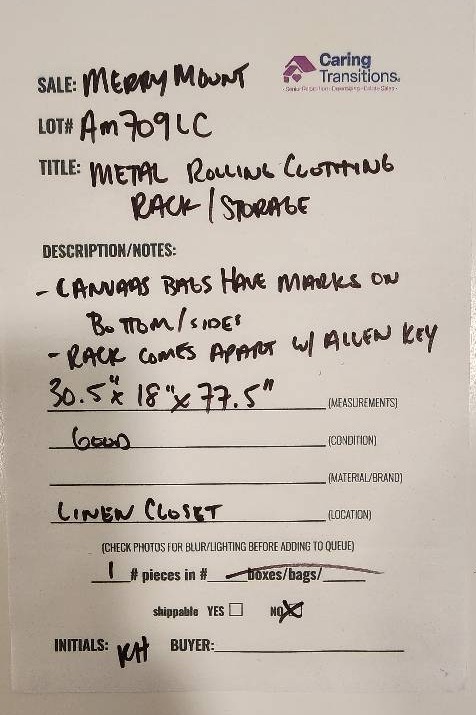 Caring
Transitions.
SALE: MERRY MOUNT
LOT# Am709LC
TITLE: METAL ROLLING CLOTHING
RACK / STORAGE
DESCRIPTION/NOTES:
- CANVAAS BAGS HAVE MARKS ON
BOTTOM/SIDES
- RACK COMES APART W/ ALLEN KEY
30.5"x 18"x 77.5" (MEASUREMENTS)
GOOD (CONDITION)
(MATERIAL/BRAND)
LINEN CLOSET (LOCATION)
(CHECK PHOTOS FOR BLUR/LIGHTING BEFORE ADDING TO QUEUE)
1 # pieces in # boxes/bags/
shippable YES ☐ NO ☒
INITIALS: KH BUYER: